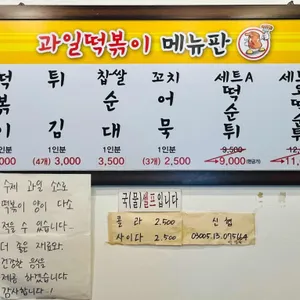 과일떡볶이 메뉴판
떡볶이 1인분
튀김 1인분 (4개) 3,000
찹쌀순대 1인분 3,500
꼬치어묵 1인분 (3개) 2,500
세트A 떡순튀 9,500 → 9,000
국(물)셀프입니다
콜라 2,500
사이다 2,500
신협
수제 과일 소스로
떡볶이 양이 다소
적을 수 있습니다
더 좋은 재료와
건강한 음식을
제공하겠습니다
감사합니다!